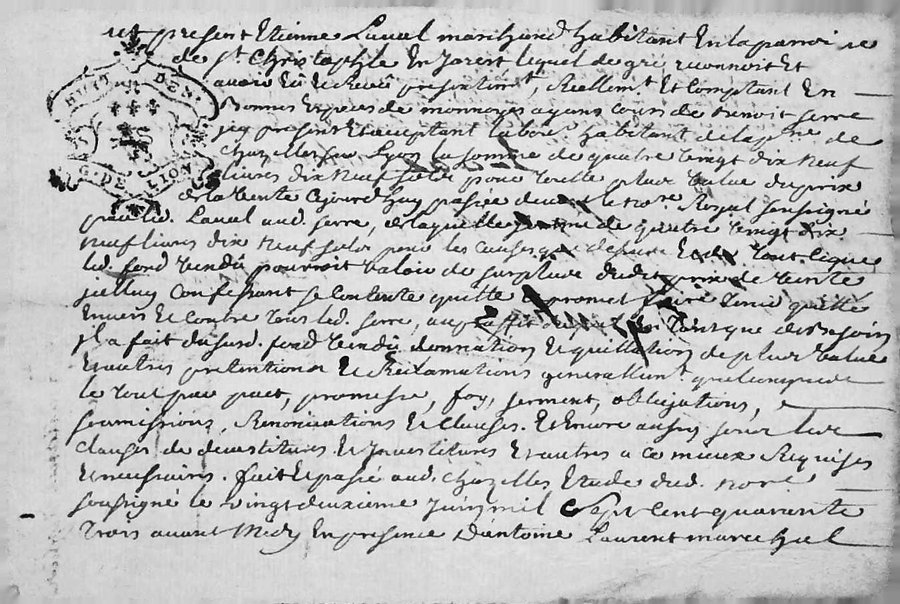 est present Etienne Laval marchand habitant En la parroisse
de st Christophle En Jarest lequel de gré reconnoit Et
avoir Eü Et Receü presentemt, Reellemt Et Comptant En
Bonnes Especes de monnoyes ayans cours de Benoit serre
icy present Et acceptant labour habitant de la psse de
chazelles sur Lyon la somme de quatre vingt dix neuf
livres dix neuf sols pour plus value du prix
de la vente Ejourdhuy passée devant le nore Royal soussigné
par led. Laval aud. serre, de laquelle somme de quatre vingt dix
neuf livres dix neuf sols pour les causes que dessus Et de tout ce que
led. fond vendu pourroit valoir de surplus dudit prix de vente
Jcelluy Confessant se contente quitte Et promet faire tenir quitte
Envers Et contre tous led. serre, au En tant que de Besoin
il a fait dususd. fond vendu donnation Et quittation de plus value
Et autres pretentions Et Reclamations generallemt quelconques
le tout par pact, promesse, foy, serment, obligations,
soumissions, Renonciations Et clauses. Et Encore aussy sous les
clauses de devestitures Et Jnvestitures Et autres a ce mieux Requises
Et necessaires. fait Et passé aud. chazelles Etude dud. nore
soussigné le vingt deuxieme Juin mil Sept cent quarante
trois avant Midy En presence d'antoine Laurent marechal
HUIT DES.
G. DE LION